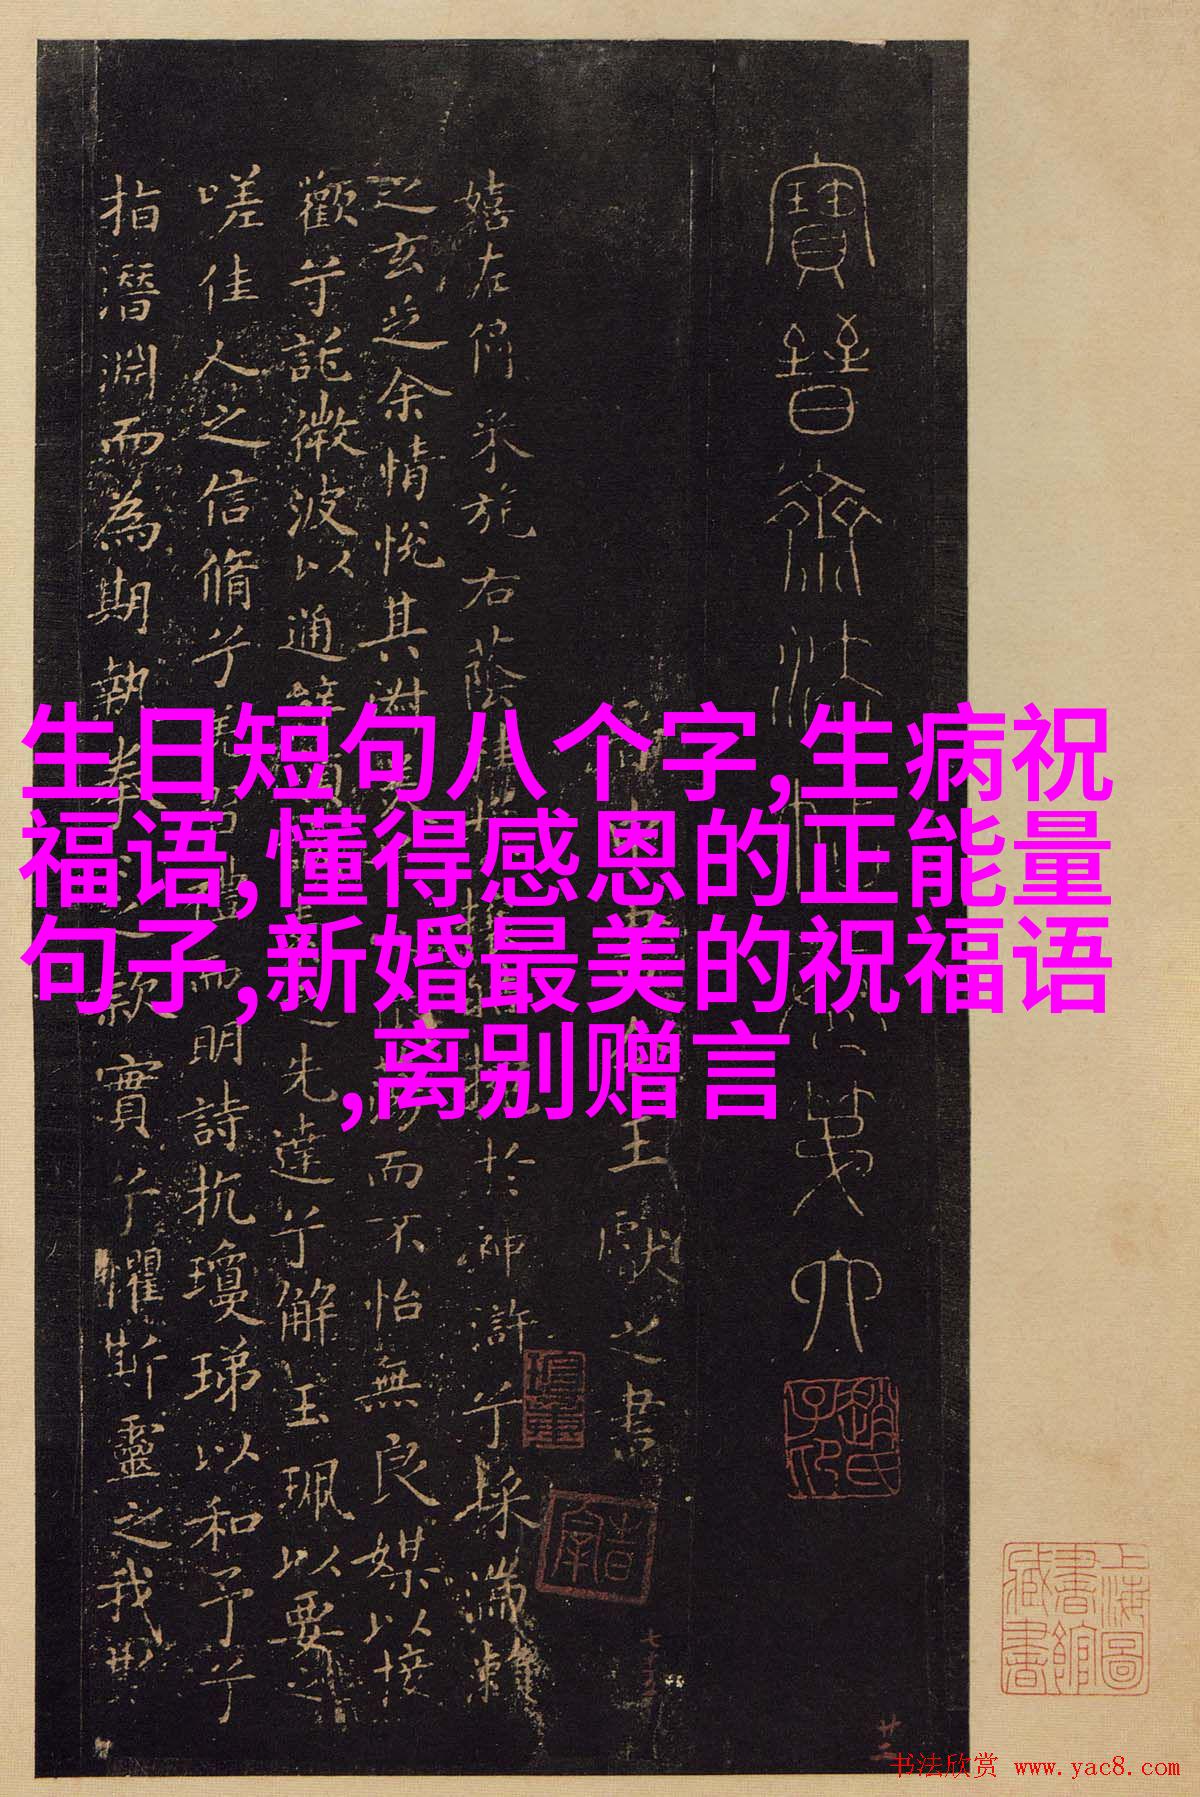 生日短句八个字,生病祝
福语,懂得感恩的正能量
句子,新婚最美的祝福语
,离别赠言
寶晉齋法六
王獻之書
嬉左倚采旄右蔭於神滸兮採湍瀨
之玄芝余情悅其淑而不怡無良媒以接
歡兮託微波以通先達兮解玉珮以要之
嗟佳人之信脩兮而明詩抗瓊珶以和予兮
指潛淵而為期執款實兮懼斯靈之我欺
上海圖書館藏書
书法欣赏 www.yac8.com